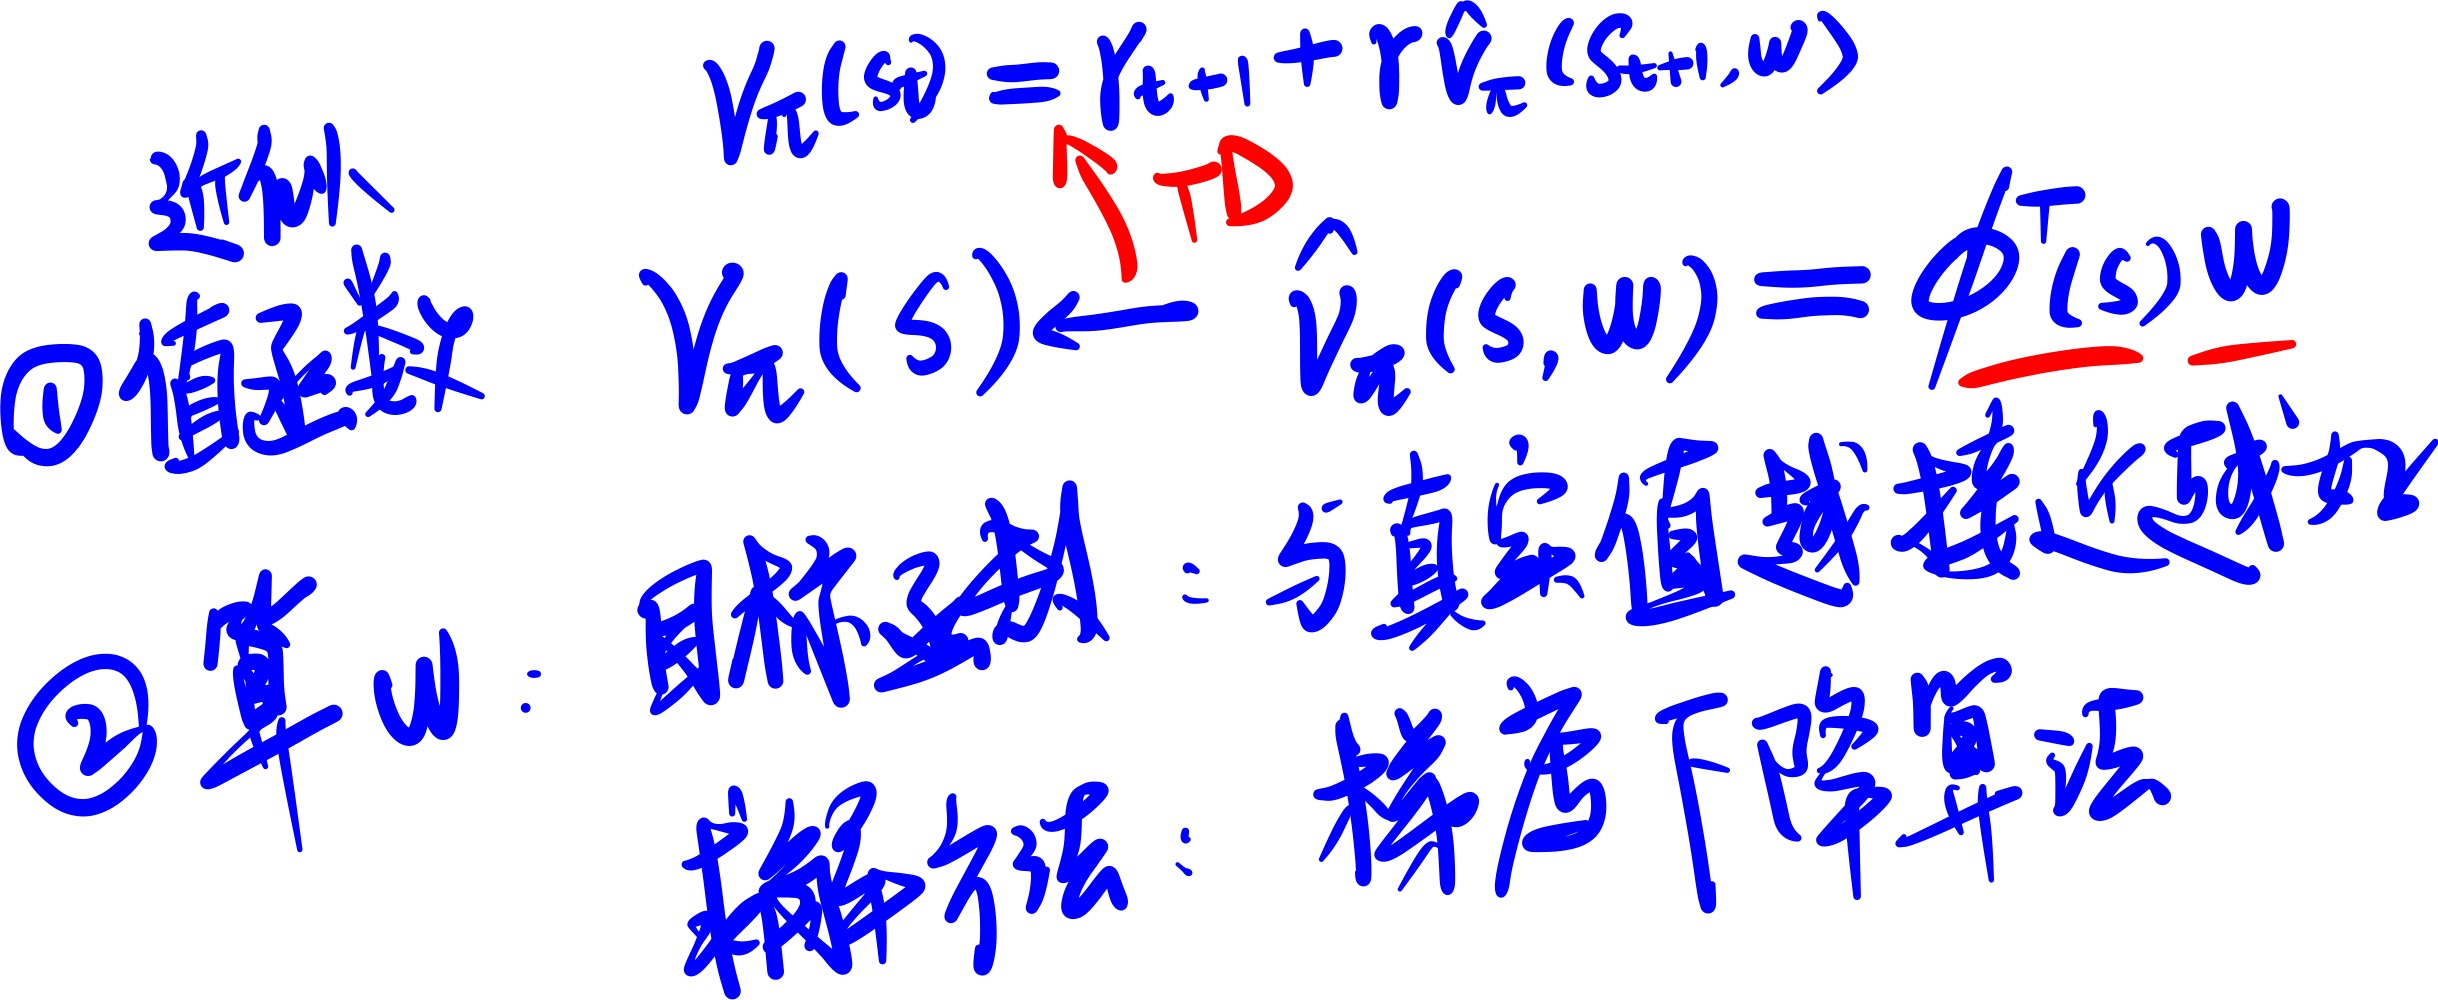 V_π(s_t) = r_{t+1} + r v̂_π(s_{t+1}, w)
TD
近似
① 值函数 V_π(s) ← v̂_π(s, w) = φ^T(s) w
② 算 w : 目标函数 : 与真实值越接近越好
求解方法 : 梯度下降算法